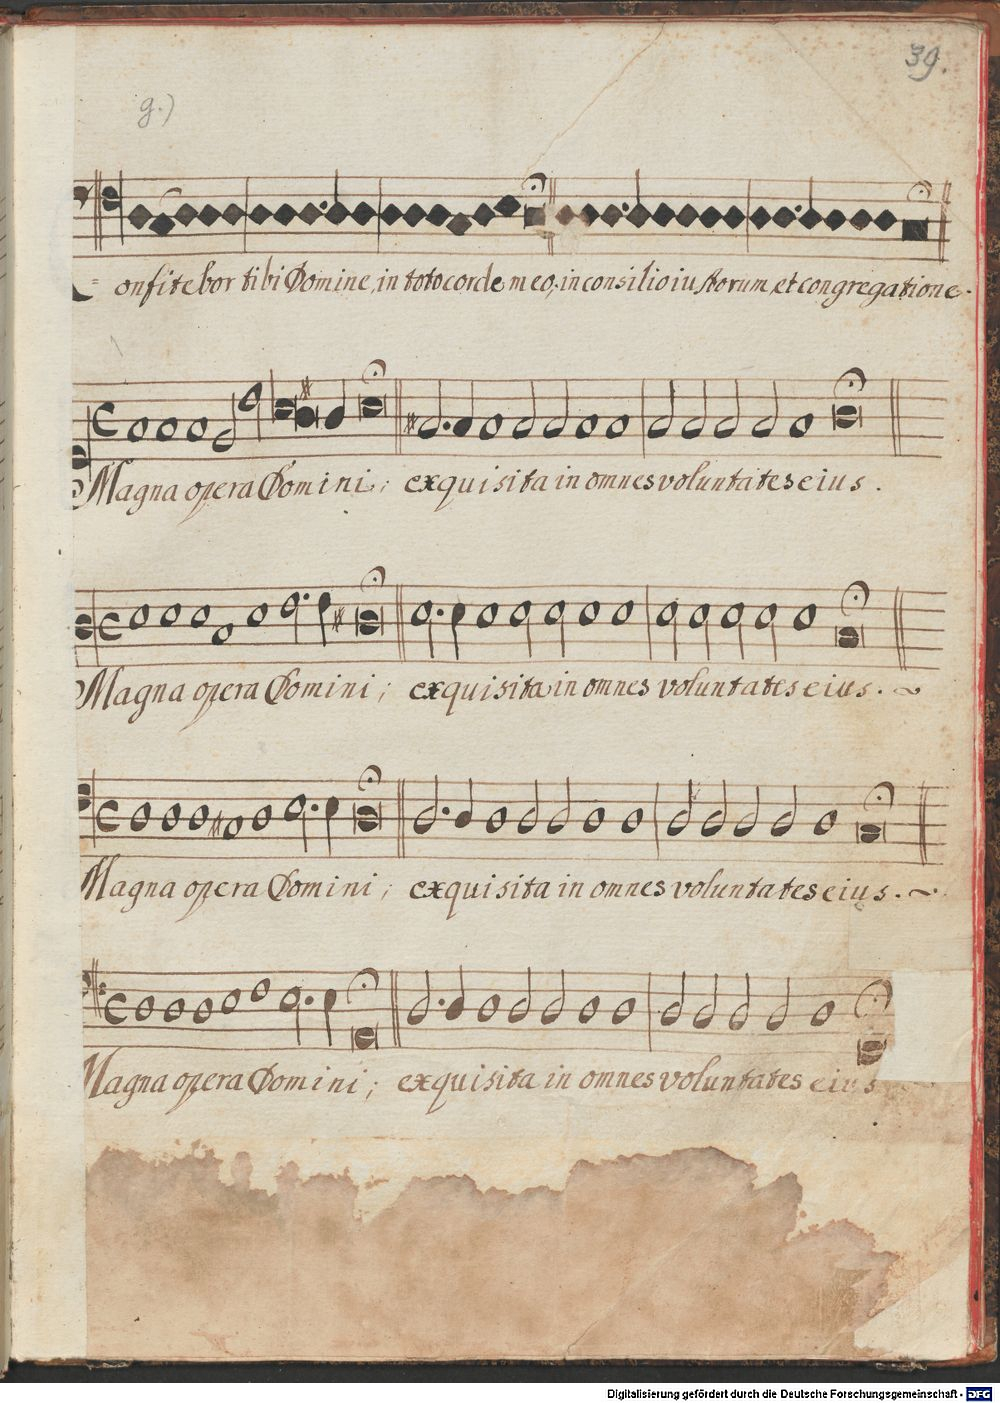 39.
g.)
onfitebor tibi Domine, in toto corde meo, in consilio iustorum et congregatione.
Magna opera Domini; exquisita in omnes voluntates eius.
Magna opera Domini; exquisita in omnes voluntates eius.
Magna opera Domini; exquisita in omnes voluntates eius.
Magna opera Domini; exquisita in omnes voluntates eius
Digitalisierung gefördert durch die Deutsche Forschungsgemeinschaft - DFG